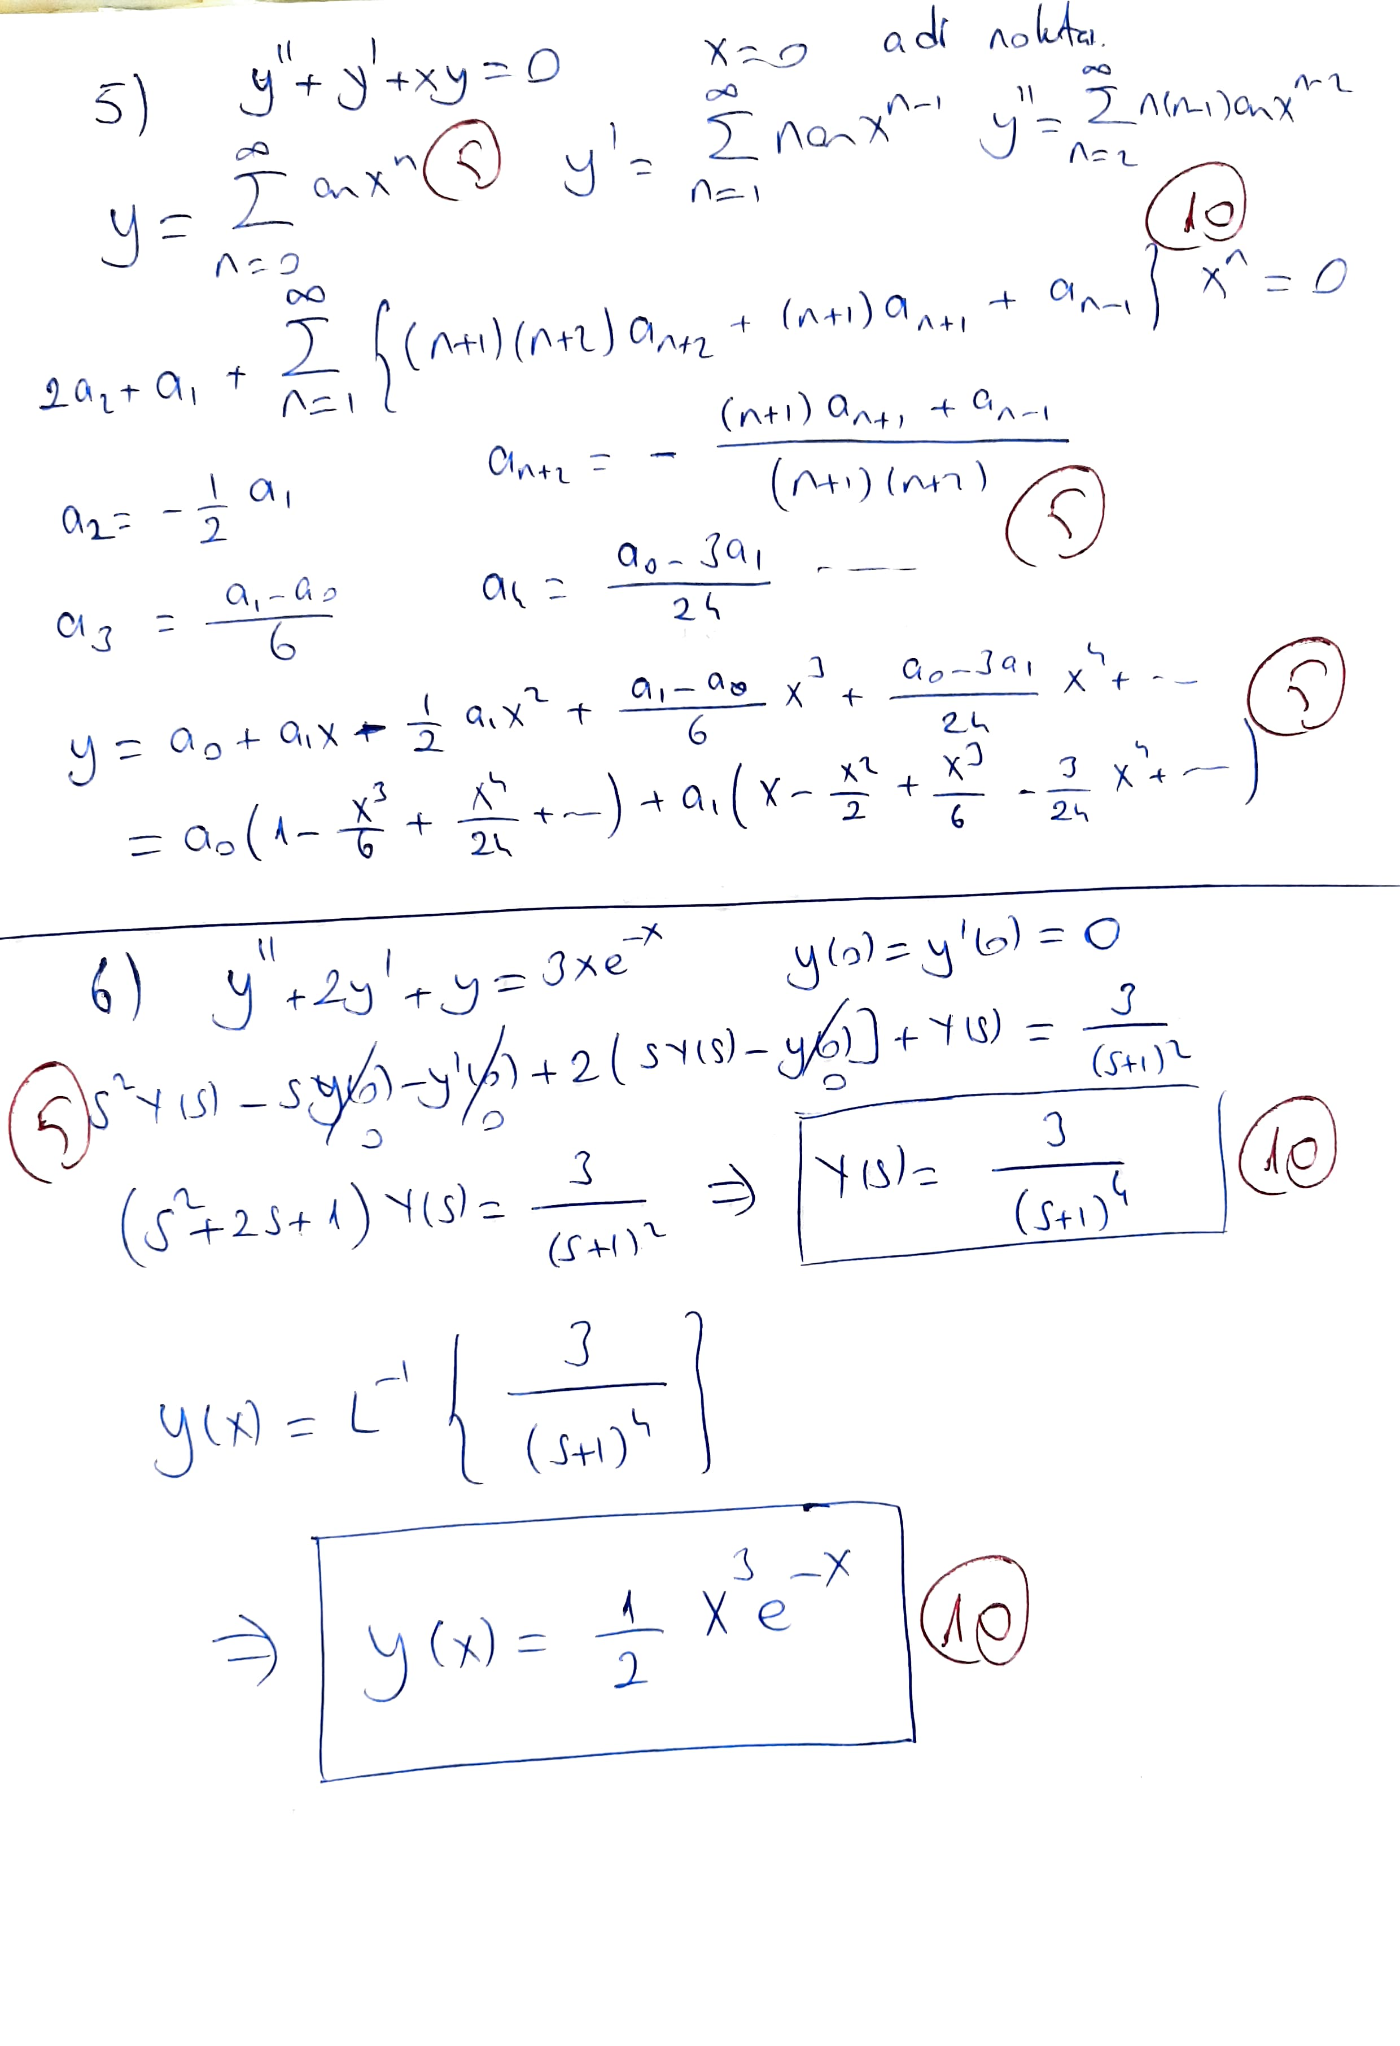 5) y'' + y' + xy = 0 x=0 adi nokta.
y = ∑_{n=0}^{∞} aₙxⁿ (5) y' = ∑_{n=1}^{∞} naₙxⁿ⁻¹ y'' = ∑_{n=2}^{∞} n(n-1)aₙxⁿ⁻²
2a₂ + a₁ + ∑_{n=1}^{∞} {(n+1)(n+2)aₙ₊₂ + (n+1)aₙ₊₁ + aₙ₋₁} xⁿ = 0 (10)
a₂ = -1/2 a₁ aₙ₊₂ = - ((n+1)aₙ₊₁ + aₙ₋₁)/((n+1)(n+2)) (5)
a₃ = (a₁-a₀)/6 a₄ = (a₀-3a₁)/24 ....
y = a₀ + a₁x - 1/2 a₁x² + (a₁-a₀)/6 x³ + (a₀-3a₁)/24 x⁴ + ... (5)
= a₀(1 - x³/6 + x⁴/24 + ...) + a₁(x - x²/2 + x³/6 - 3/24 x⁴ + ...)
6) y'' + 2y' + y = 3xe⁻ˣ y(0) = y'(0) = 0
(5) s²Y(s) - sy(0) - y'(0) + 2(sY(s) - y(0)] + Y(s) = 3/(s+1)²
0 0 0
(s²+2s+1)Y(s) = 3/(s+1)² ⇒ Y(s) = 3/(s+1)⁴ (10)
y(x) = L⁻¹ {3/(s+1)⁴}
⇒ y(x) = 1/2 x³e⁻ˣ (10)